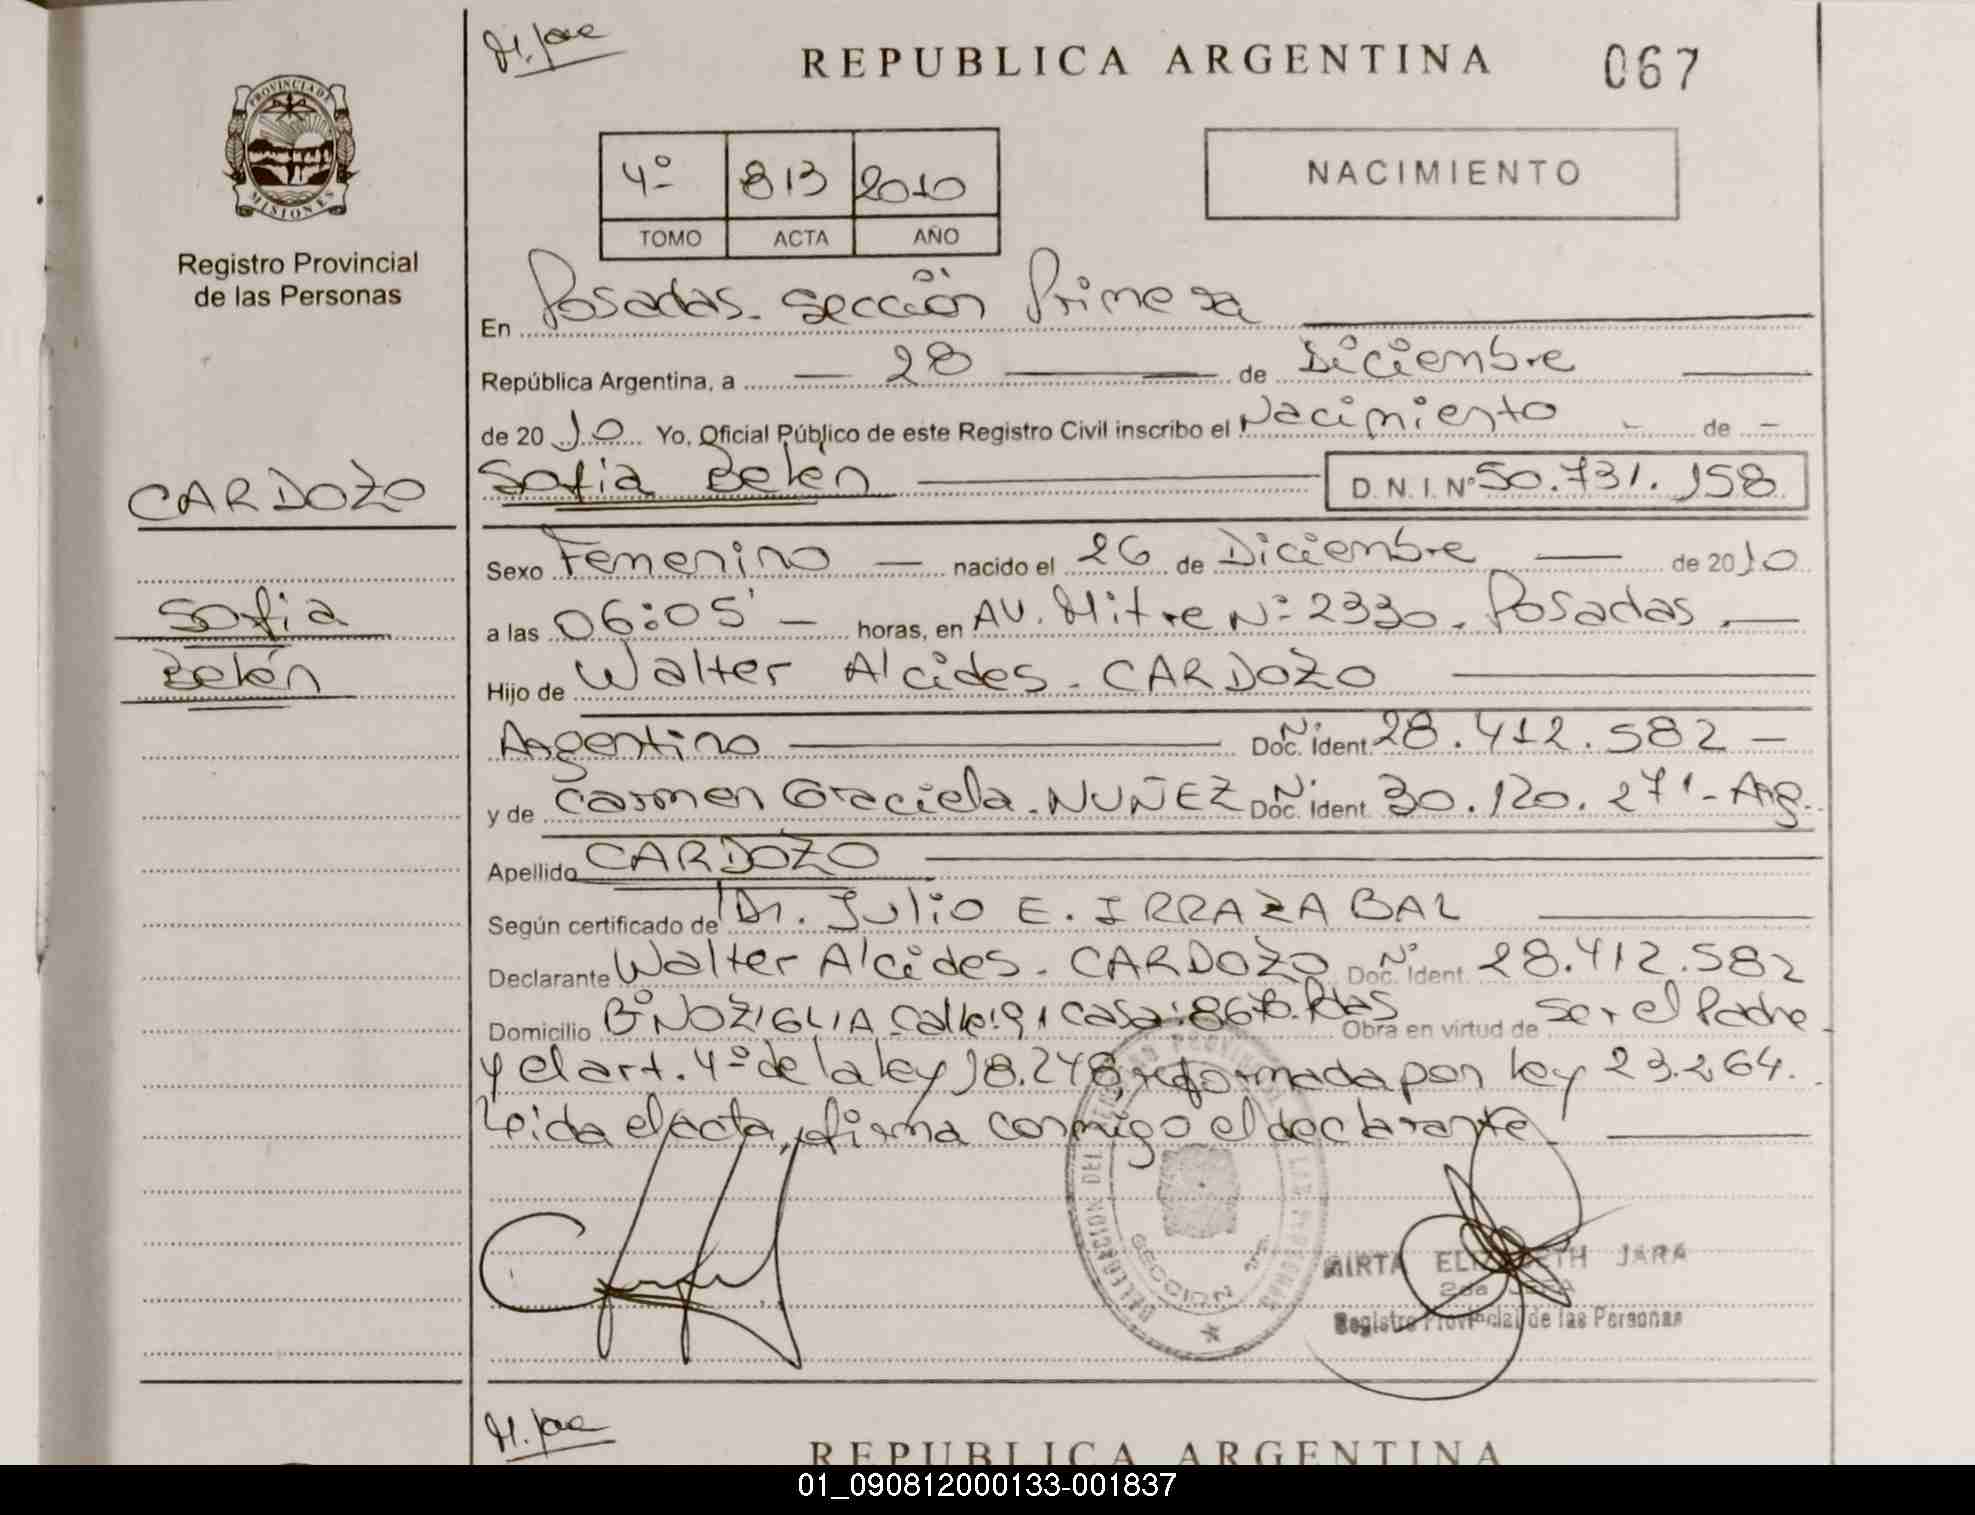 REPUBLICA ARGENTINA
067
PROVINCIA DE
MISIONES
Registro Provincial
de las Personas
4º 813 2010
TOMO ACTA AÑO
NACIMIENTO
En Posadas. sección Primera
República Argentina, a 28 de Diciembre
de 2010 Yo, Oficial Público de este Registro Civil inscribo el Nacimiento - de -
Sofia Belén D. N. I. Nº 50.731.158
CARDOZO
Sofia
Belén
Sexo Femenino nacido el 26 de Diciembre de 2010
a las 06:05' horas, en AV. Mitre Nº 2330. Posadas.
Hijo de Walter Alcides. CARDOZO
Argentino Doc. Ident. Nº 28.412.582 -
y de Carmen Graciela. NUÑEZ Doc. Ident. Nº 30.120.271 - Arg.
Apellido CARDOZO
Según certificado de Dr. Julio E. IRRAZABAL
Declarante Walter Alcides. CARDOZO Doc. Ident. Nº 28.412.582
Domicilio Bº NOZIGLIA Calle: 91 Casa: 8678. Pdas Obra en virtud de ser el Padre
y el art. 4º de la ley 18.248, reformada por ley 23.264.
Leida el acta, firma conmigo el declarante
MIRTA ELIZABETH JARA
Registro Provincial de las Personas
REPUBLICA ARGENTINA
01_090812000133-001837